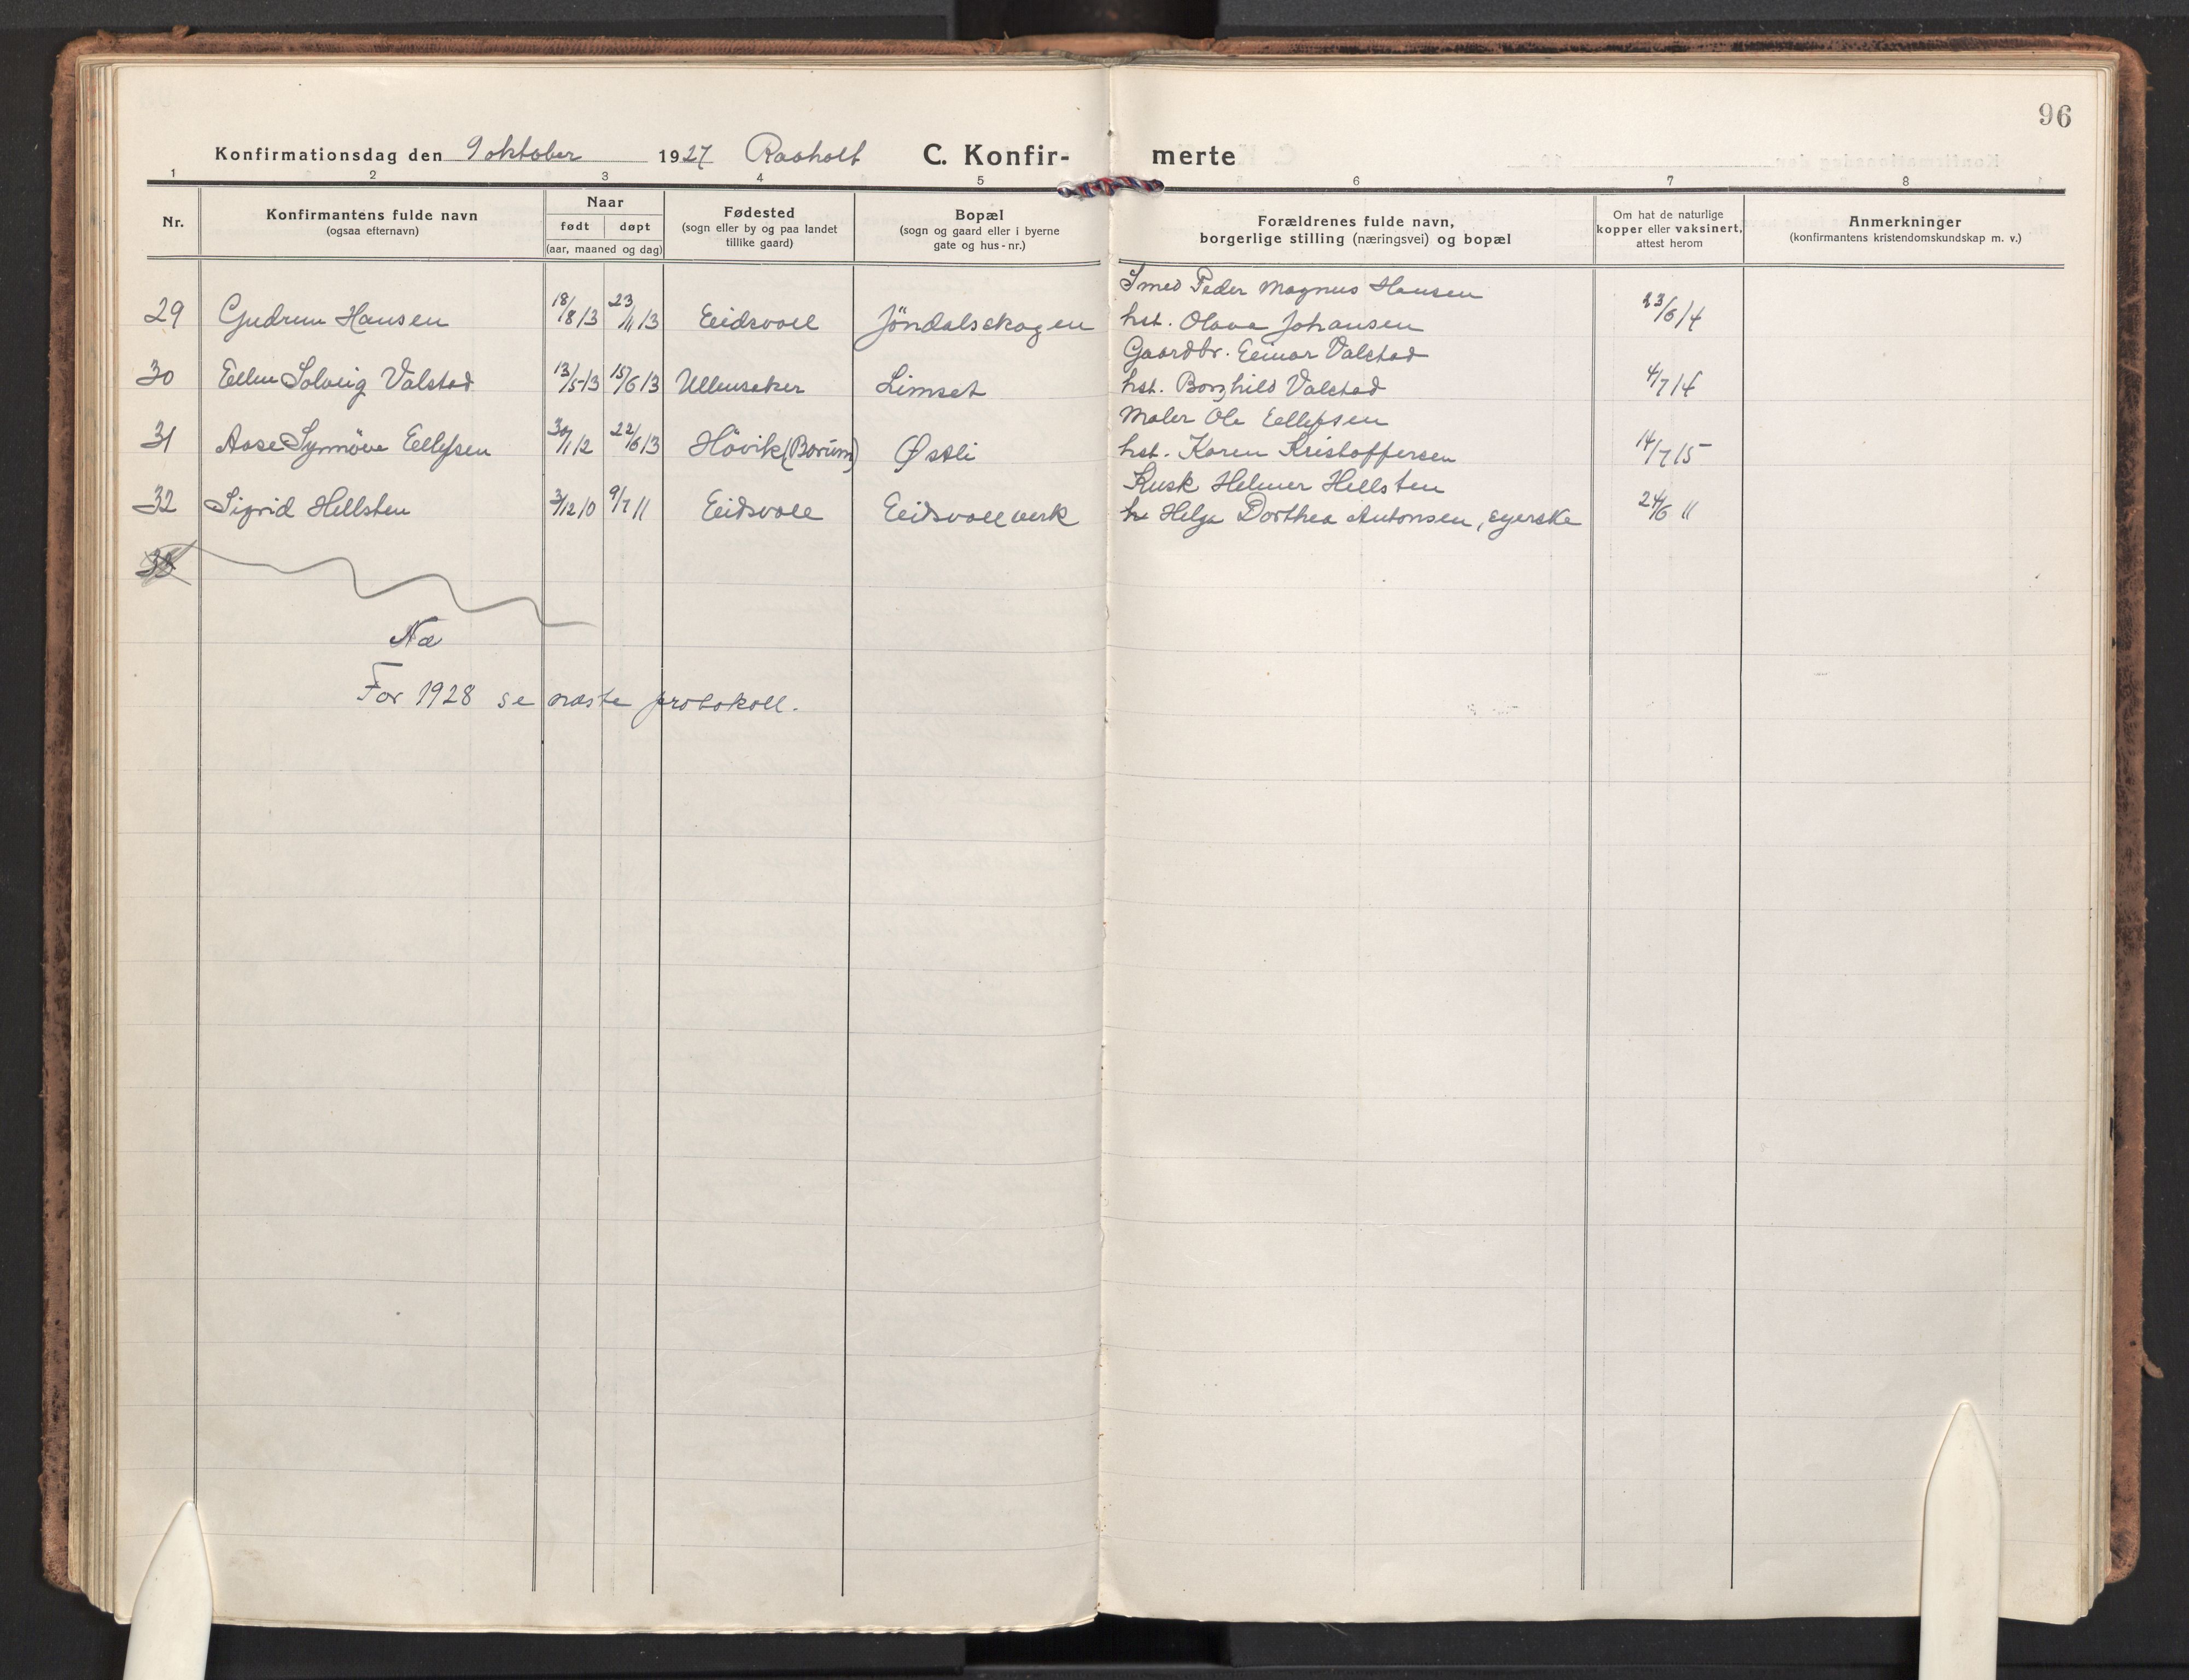 96
Konfirmationsdag den 9 oktober 1927 Raaholt C. Konfir- merte
1 2 3 4 5 6 7 8
Nr.
Konfirmantens fulde navn
(ogsaa efternavn)
Naar
født døpt
(aar, maaned og dag)
Fødested
(sogn eller by og paa landet
tillike gaard)
Bopæl
(sogn og gaard eller i byerne
gate og hus-nr.)
Forældrenes fulde navn,
borgerlige stilling (næringsvei) og bopæl
Om hat de naturlige
kopper eller vaksinert,
attest herom
Anmerkninger
(konfirmantens kristendomskundskap m. v.)
Smed Peder Magnus Hansen
29 Gudrun Hansen 18/8 13 23/11 13 Eidsvoll Jöndalsskogen hst. Olava Johansen 23/6 14
Gaardbr. Einar Valstad
30 Ellen Solveig Valstad 13/5 13 15/6 13 Ullensaker Limset hst. Borghild Valstad 4/7 14
Maler Ole Ellefsen
31 Aase Synnöve Ellefsen 30/1 12 22/6 13 Hövik (Bærum) Østli hst. Karen Kristoffersen 14/7 15
Kusk Helmer Hellsten
32 Sigrid Hellsten 3/12 10 9/7 11 Eidsvoll Eidsvoll verk h Helga Dorthea Antonsen, syerske 24/6 11
33
Næ
For 1928 se næste protokoll.